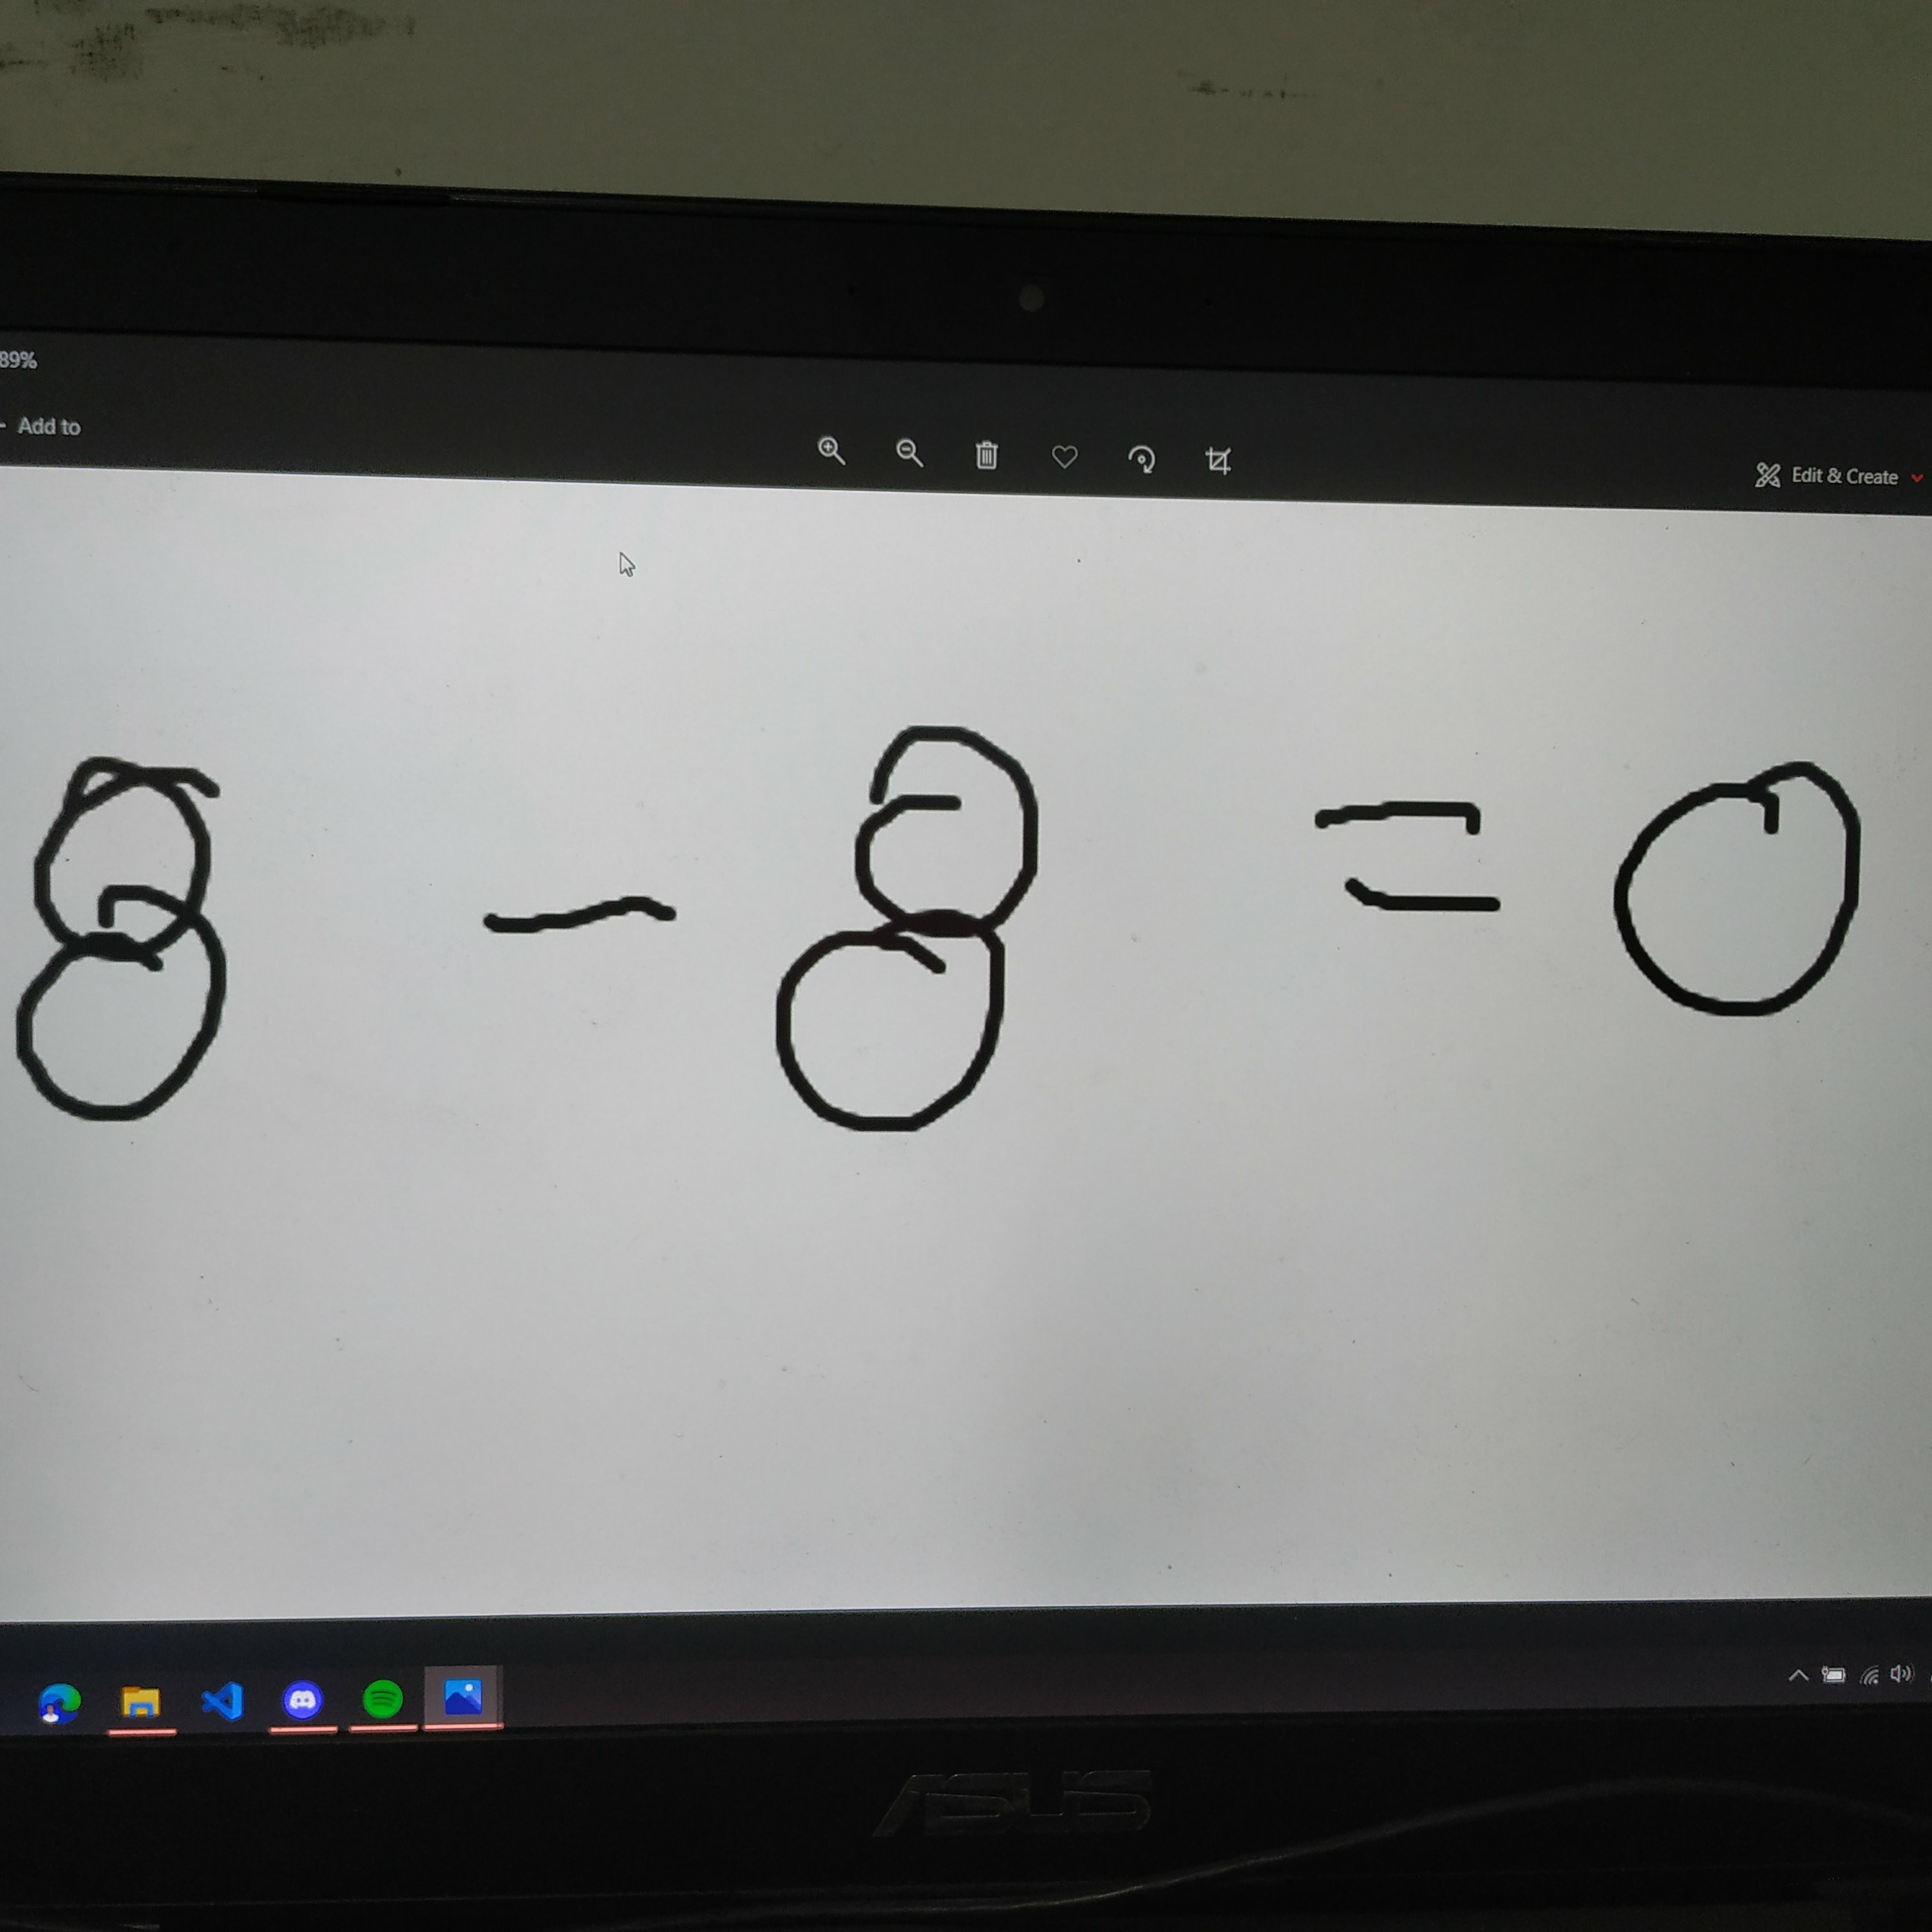 89%
Add to
Edit & Create
8 - 8 = 0
ASUS